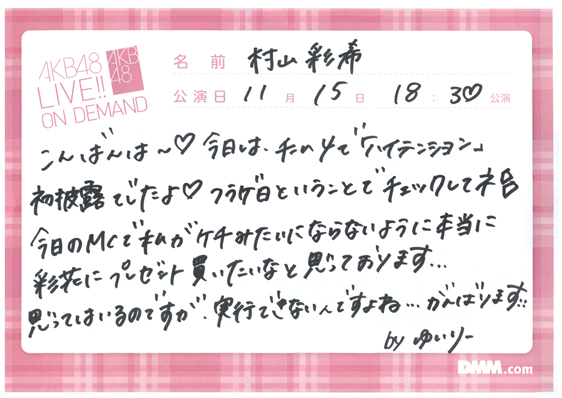 AKB48
LIVE!!
ON DEMAND
AKB
48
名前 村山彩希
公演日 11月 15日 18:30公演
こんばんは〜♡ 今日は、チム4で「ハイテンション」
初披露でしたよ♡ フラゲ日ということでチェックしてネ
今日のMCで私がケチみたいにならないように本当に
彩花にプレゼント買いたいなと思っております…
思ってはいるのですが、実行できないんですよね…がんばります!!
by ゆいりー
DMM.com